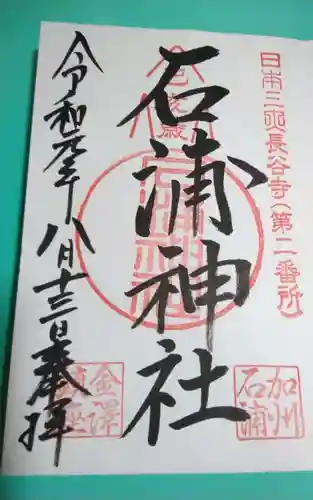 日本三所長谷寺(第二番所)
石浦神社
加州
石浦
令和元年八月十三日奉拝
金澤